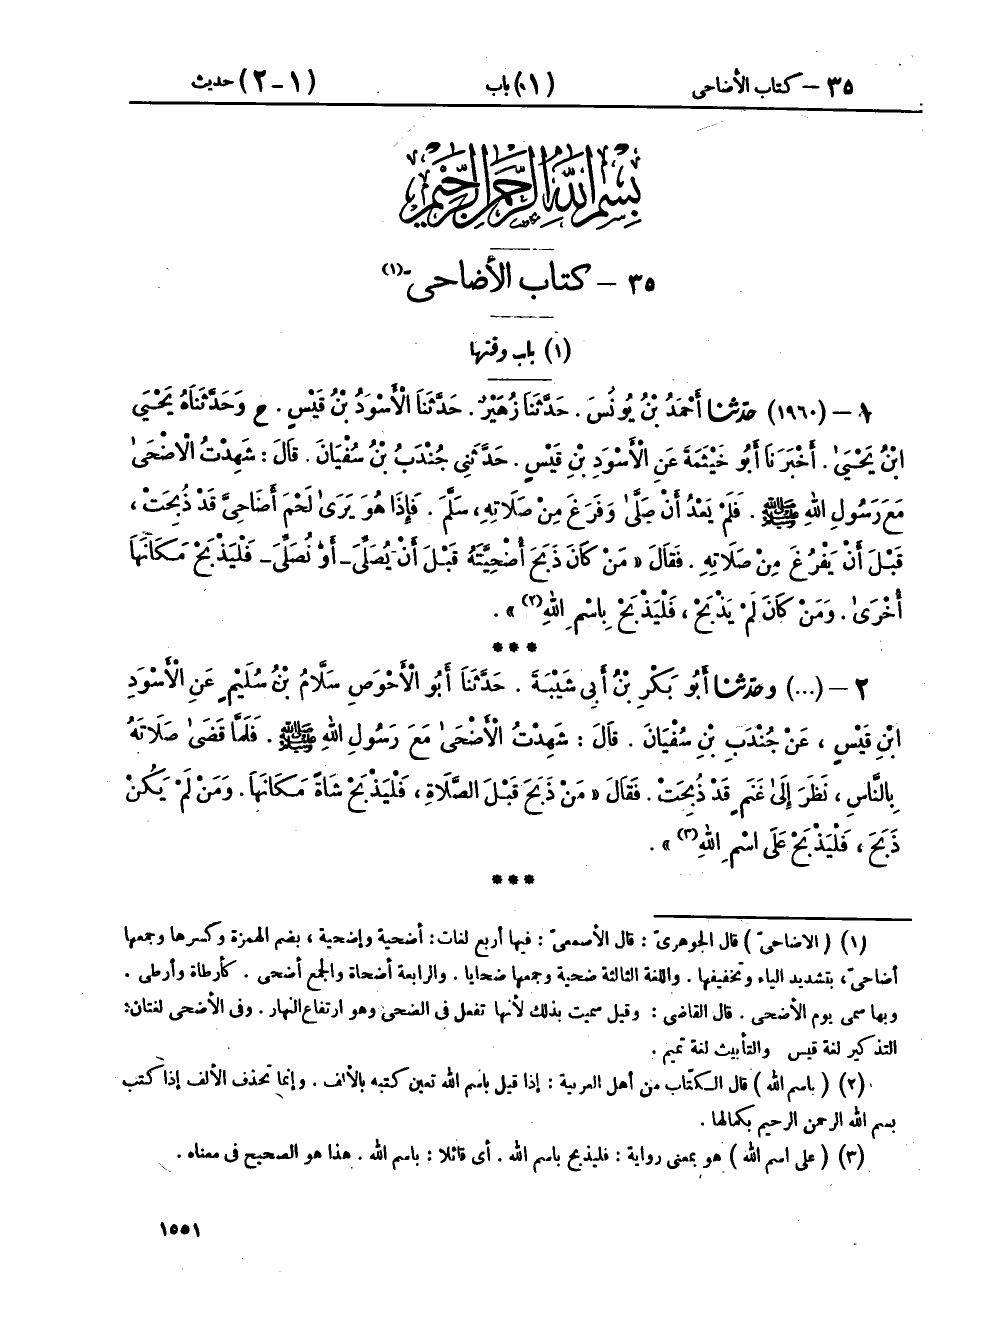 ٣٥ – كتاب الأضاحى (١) باب (١–٢) حديث
بسم الله الرحمن الرحيم
٣٥ – كتاب الأضاحى (١)
(١) باب وقتها
١ – (١٩٦٠) حَدَّثَنَا أَحْمَدُ بْنُ يُونُسَ . حَدَّثَنَا زُهَيْرٌ . حَدَّثَنَا الْأَسْوَدُ بْنُ قَيْسٍ . ح وَحَدَّثَنَاهُ يَحْيَىٰ
ابْنُ يَحْيَىٰ . أَخْبَرَنَا أَبُو خَيْثَمَةَ عَنِ الْأَسْوَدِ بْنِ قَيْسٍ . حَدَّثَنِى جُنْدَبُ بْنُ سُفْيَانَ . قَالَ : شَهِدْتُ الْأَضْحَىٰ
مَعَ رَسُولِ اللهِ ﷺ . فَلَمْ يَعْدُ أَنْ صَلَّىٰ وَفَرَغَ مِنْ صَلَاتِهِ، سَلَّمَ . فَإِذَا هُوَ يَرَىٰ لَحْمَ أَضَاحِىَّ قَدْ ذُبِحَتْ ،
قَبْلَ أَنْ يَفْرُغَ مِنْ صَلَاتِهِ . فَقَالَ « مَنْ كَانَ ذَبَحَ أُضْحِيَّتَهُ قَبْلَ أَنْ يُصَلِّىَ – أَوْ نُصَلِّىَ – فَلْيَذْبَحْ مَكَانَهَا
أُخْرَىٰ . وَمَنْ كَانَ لَمْ يَذْبَحْ ، فَلْيَذْبَحْ بِاسْمِ اللهِ (٢) » .
***
٢ – (...) وحَدَّثَنَا أَبُو بَكْرِ بْنُ أَبِى شَيْبَةَ . حَدَّثَنَا أَبُو الْأَحْوَصِ سَلَّامُ بْنُ سُلَيْمٍ عَنِ الْأَسْوَدِ
ابْنِ قَيْسٍ ، عَنْ جُنْدَبِ بْنِ سُفْيَانَ . قَالَ : شَهِدْتُ الْأَضْحَىٰ مَعَ رَسُولِ اللهِ ﷺ . فَلَمَّا قَضَىٰ صَلَاتَهُ
بِالنَّاسِ ، نَظَرَ إِلَىٰ غَنَمٍ قَدْ ذُبِحَتْ . فَقَالَ « مَنْ ذَبَحَ قَبْلَ الصَّلَاةِ ، فَلْيَذْبَحْ شَاةً مَكَانَهَا . وَمَنْ لَمْ يَكُنْ
ذَبَحَ ، فَلْيَذْبَحْ عَلَى اسْمِ اللهِ (٣) » .
***
(١) ( الاضاحىّ ) قال الجوهرىّ : قال الأصمعىّ : فيها أربع لغات : أضحية وإضحية ، بضم الهمزة وكسرها وجمعها
أضاحىّ، بتشديد الياء وتخفيفها . واللغة الثالثة ضحية وجمعها ضحايا . والرابعة أضحاة والجمع أضحى . كأرطاة وأرطى .
وبها سمى يوم الأضحى . قال القاضى : وقيل سميت بذلك لأنها تفعل فى الضحى وهو ارتفاع النهار . وفى الأضحى لغتان:
التذكير لغة قيس والتأنيث لغة تميم .
(٢) ( باسم الله ) قال الكتّاب من أهل العربية : إذا قيل باسم الله تعين كتبه بالألف . وإنما تحذف الألف إذا كتب
بسم الله الرحمن الرحيم بكمالها .
(٣) ( على اسم الله ) هو بمعنى رواية : فليذبح باسم الله . أى قائلا : باسم الله . هذا هو الصحيح فى معناه .
١٥٥١